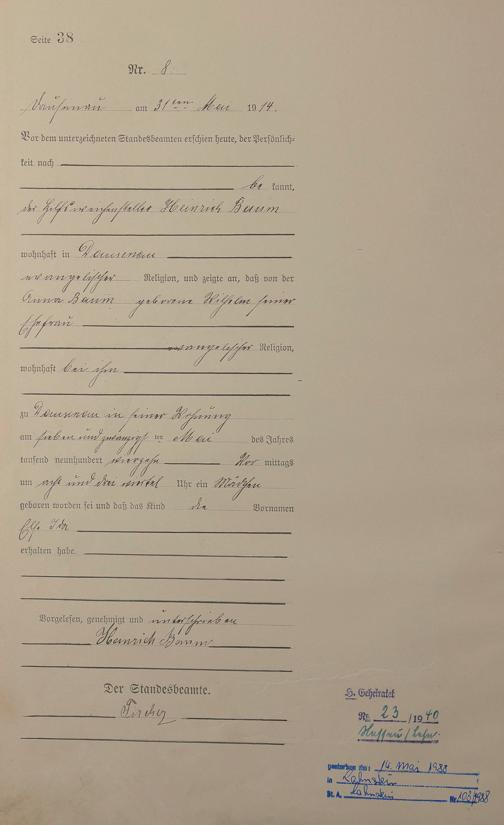 Seite 38
Nr. 8.
Dausenau am 31ten Mai 1914.
Vor dem unterzeichneten Standesbeamten erschien heute, der Persönlich-
keit nach
be kannt,
der Hilfsweichensteller Heinrich Baum
wohnhaft in Dausenau
evangelischer Religion, und zeigte an, daß von der
Anna Baum geborene Wilhelm seiner
Ehefrau
evangelischer Religion,
wohnhaft bei ihm
zu Dausenau in seiner Wohnung
am sieben und zwanzigsten Mai des Jahres
tausend neunhundert vierzehn Vor mittags
um acht und drei viertel Uhr ein Mädchen
geboren worden sei und daß das Kind die Vornamen
Else Ida
erhalten habe.
Vorgelesen, genehmigt und unterschrieben
Heinrich Baum
Der Standesbeamte.
Geheiratet
Nr. 23 /1940
Nassau/Lahn.
gestorben am: 14. Mai 1988
in Lahnstein
St. A. Lahnstein Nr. 103/1988